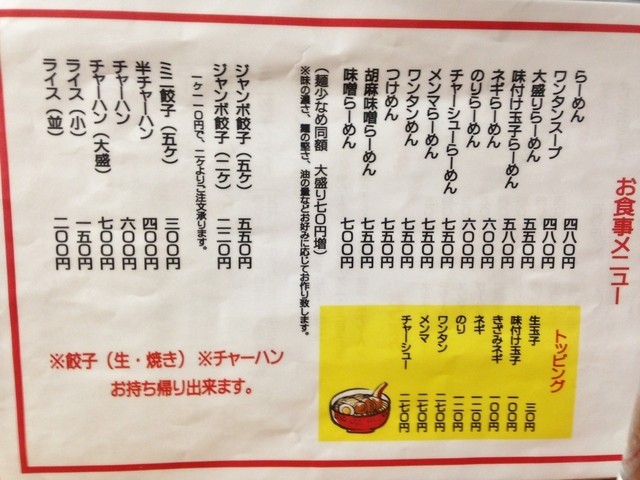 お食事メニュー
らーめん 四八〇円
ワンタンスープ 四八〇円
大盛りらーめん 五五〇円
味付け玉子らーめん 五八〇円
ネギらーめん 六〇〇円
のりらーめん 六〇〇円
チャーシューらーめん 七五〇円
メンマらーめん 七五〇円
ワンタンめん 七五〇円
つけめん 七五〇円
胡麻味噌らーめん 七五〇円
味噌らーめん 七〇〇円
（麺少なめ同額　大盛り七〇円増）
※味の濃さ、麺の堅さ、油の量などお好みに応じてお作り致します。
トッピング
生玉子 三〇円
味付け玉子 一〇〇円
きざみネギ 一〇〇円
ネギ 一二〇円
のり 一二〇円
ワンタン 二七〇円
メンマ 二七〇円
チャーシュー 二七〇円
ジャンボ餃子（五ケ） 五五〇円
ジャンボ餃子（二ケ） 二二〇円
一ケ一一〇円で、二ケよりご注文承ります。
ミニ餃子（五ケ） 三〇〇円
半チャーハン 四〇〇円
チャーハン 六〇〇円
チャーハン（大盛） 七〇〇円
ライス（小） 一五〇円
ライス（並） 二〇〇円
※餃子（生・焼き）※チャーハン
お持ち帰り出来ます。